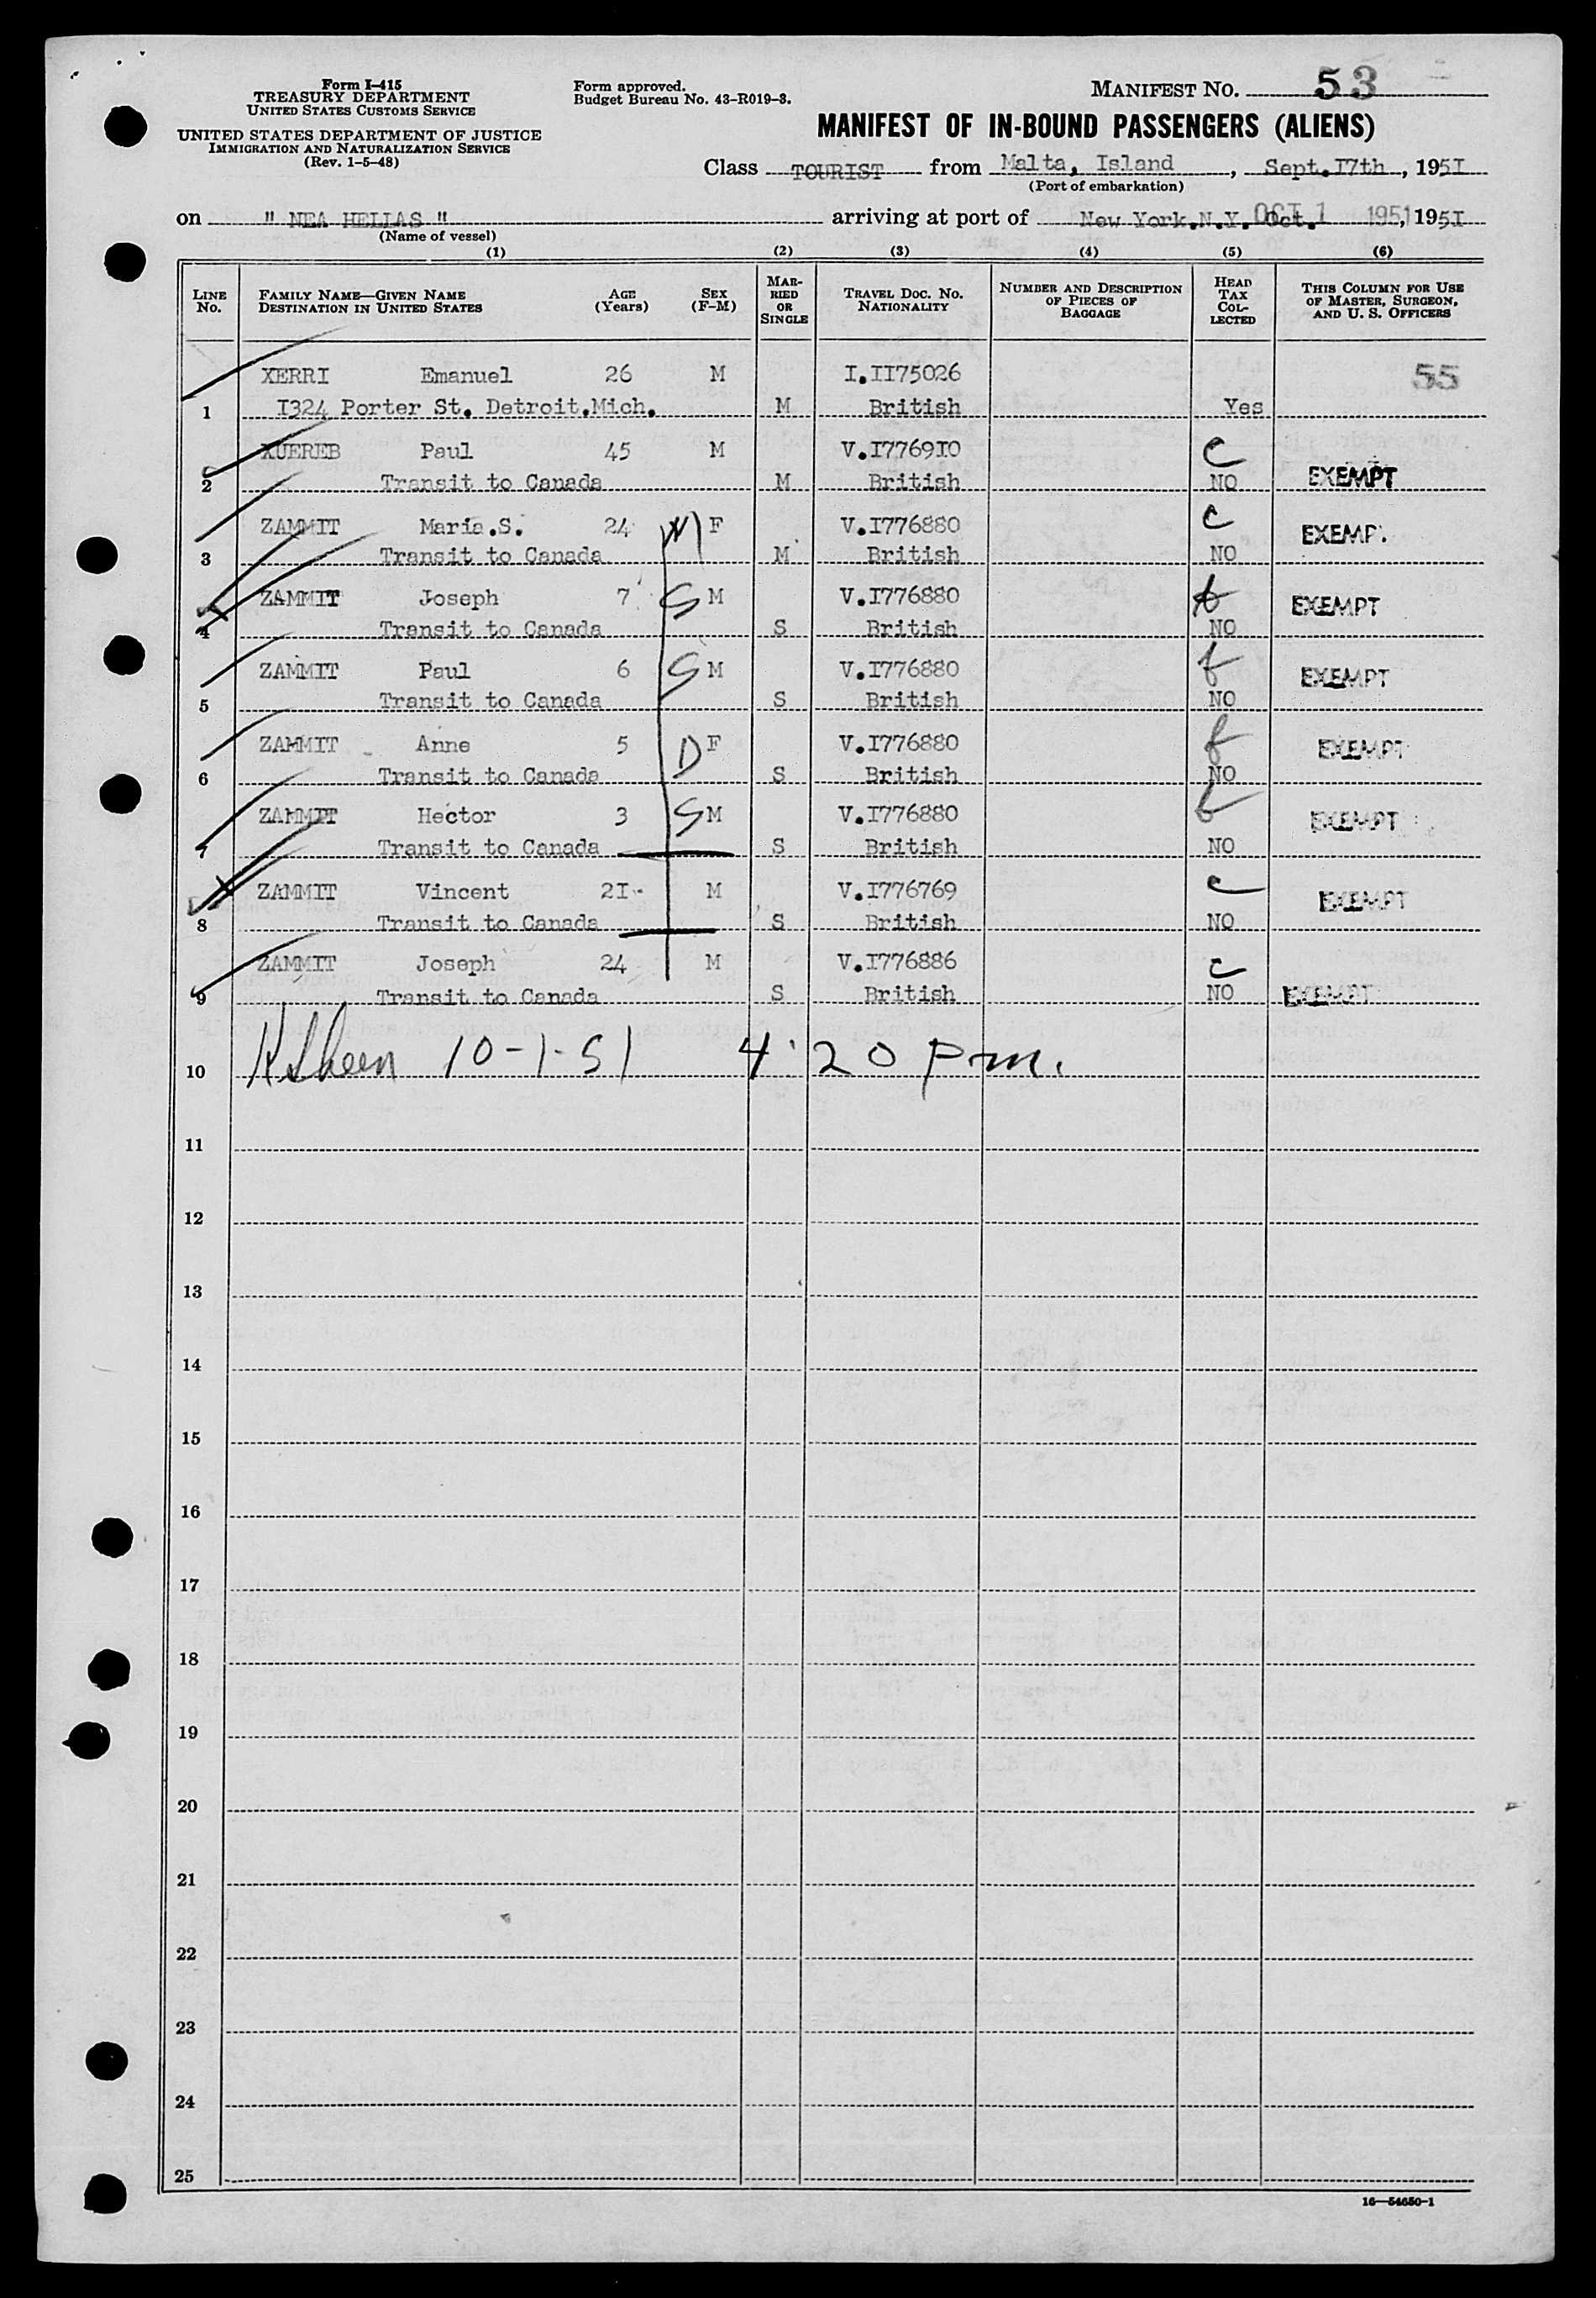 Form I-415
TREASURY DEPARTMENT
UNITED STATES CUSTOMS SERVICE
UNITED STATES DEPARTMENT OF JUSTICE
IMMIGRATION AND NATURALIZATION SERVICE
(Rev. 1-5-48)
Form approved.
Budget Bureau No. 43-R019-3.
MANIFEST NO. 53
MANIFEST OF IN-BOUND PASSENGERS (ALIENS)
Class TOURIST from Malta, Island, Sept.I7th, 195I
(Port of embarkation)
on " NEA HELLAS " arriving at port of New York.N.Y. Oct. OCT 1 1951, 195I
(Name of vessel)
(1) (2) (3) (4) (5) (6)
LINE No. FAMILY NAME—GIVEN NAME DESTINATION IN UNITED STATES AGE (Years) SEX (F-M) MARRIED OR SINGLE TRAVEL DOC. NO. NATIONALITY NUMBER AND DESCRIPTION OF PIECES OF BAGGAGE HEAD TAX COLLECTED THIS COLUMN FOR USE OF MASTER, SURGEON, AND U. S. OFFICERS
XERRI Emanuel 26 M I.II75026 55
1 I324 Porter St. Detroit.Mich. M British Yes
XUEREB Paul 45 M V.I7769I0 C
2 Transit to Canada M British NO EXEMPT
ZAMMIT Maria.S. 24 W F V.I776880 C EXEMP.
3 Transit to Canada M British NO
ZAMMIT Joseph 7 S M V.I776880 EXEMPT
4 Transit to Canada S British NO
ZAMMIT Paul 6 S M V.I776880 f EXEMPT
5 Transit to Canada S British NO
ZAMMIT Anne 5 D F V.I776880 f EXEMPT
6 Transit to Canada S British NO
ZAMMIT Hector 3 S M V.I776880 EXEMPT
7 Transit to Canada S British NO
ZAMMIT Vincent 2I M V.I776769 C EXEMPT
8 Transit to Canada S British NO
ZAMMIT Joseph 24 M V.I776886 C
9 Transit to Canada S British NO EXEMPT
10 10-1-51 4:20 pm.
11
12
13
14
15
16
17
18
19
20
21
22
23
24
25
16—54650-1